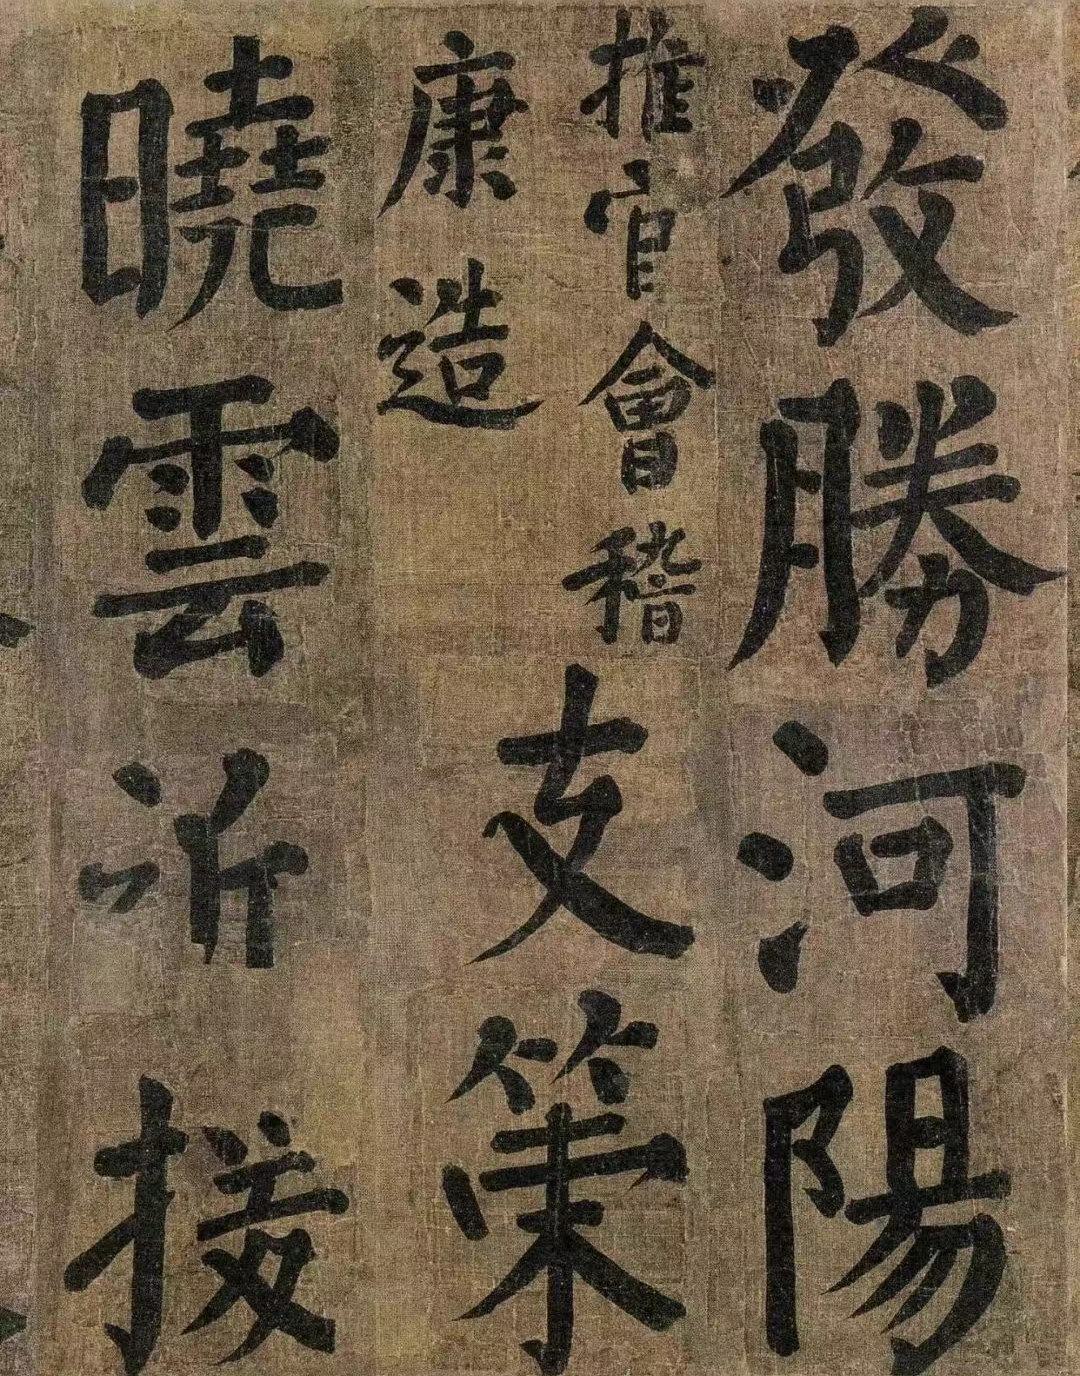 發勝河陽
推官會稽
康造
支策
曉雲近援